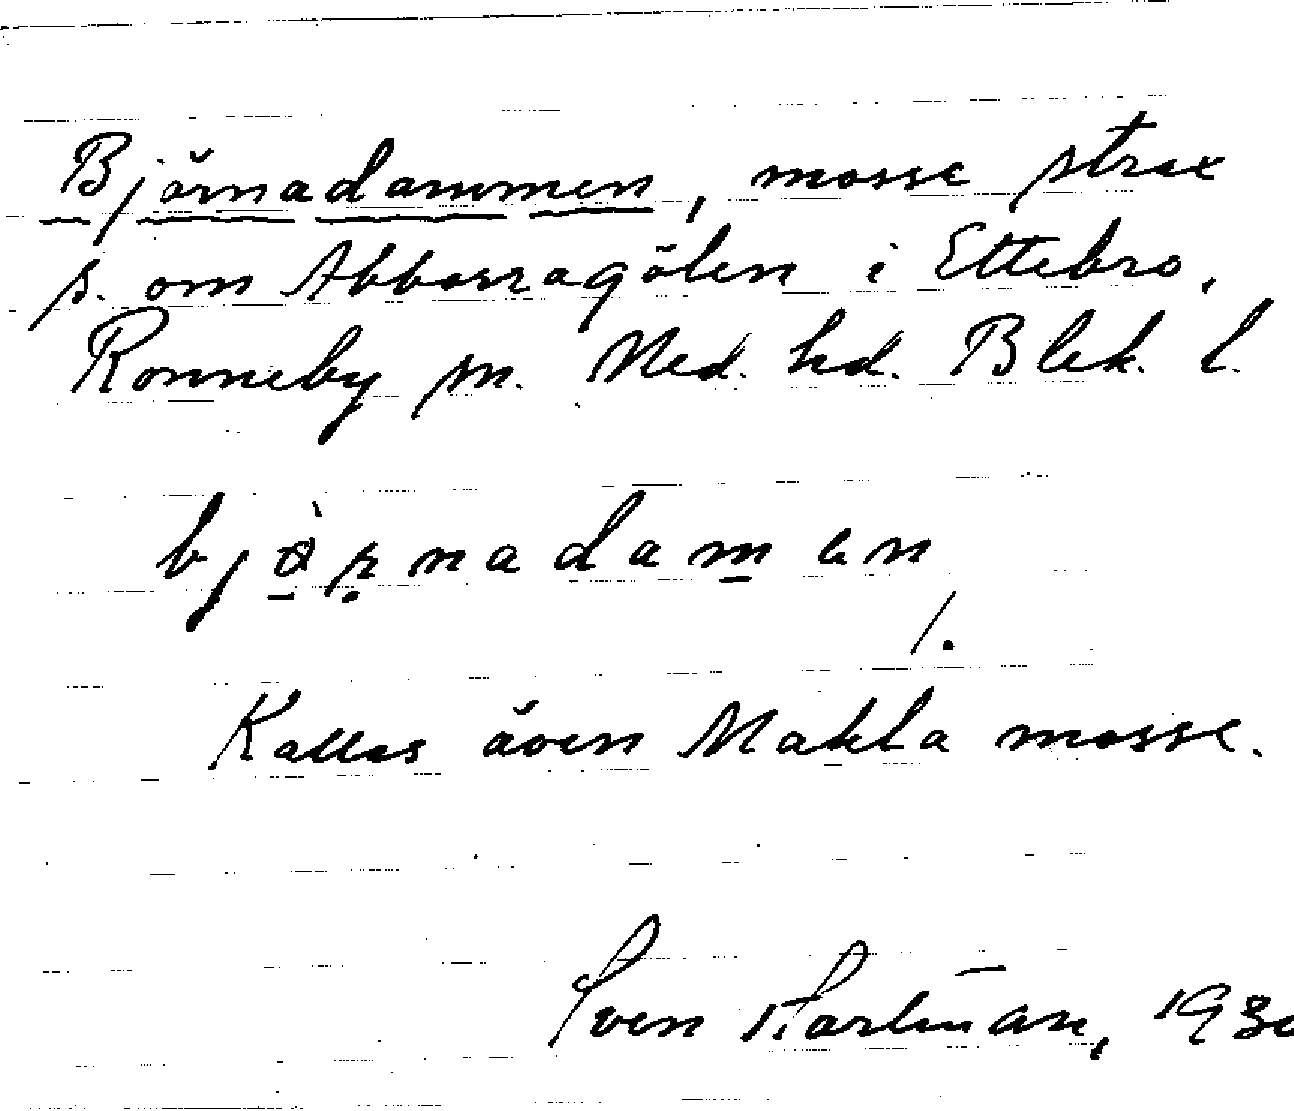 Björnadammen, mosse strax
s. om Abborragölen i Ettebro,
Ronneby sn. Med. hd. Blek. l.
bjø̱̀ṛnadam̱en
/.
Kallas även Makla mosse.
Sven Hartman, 1930